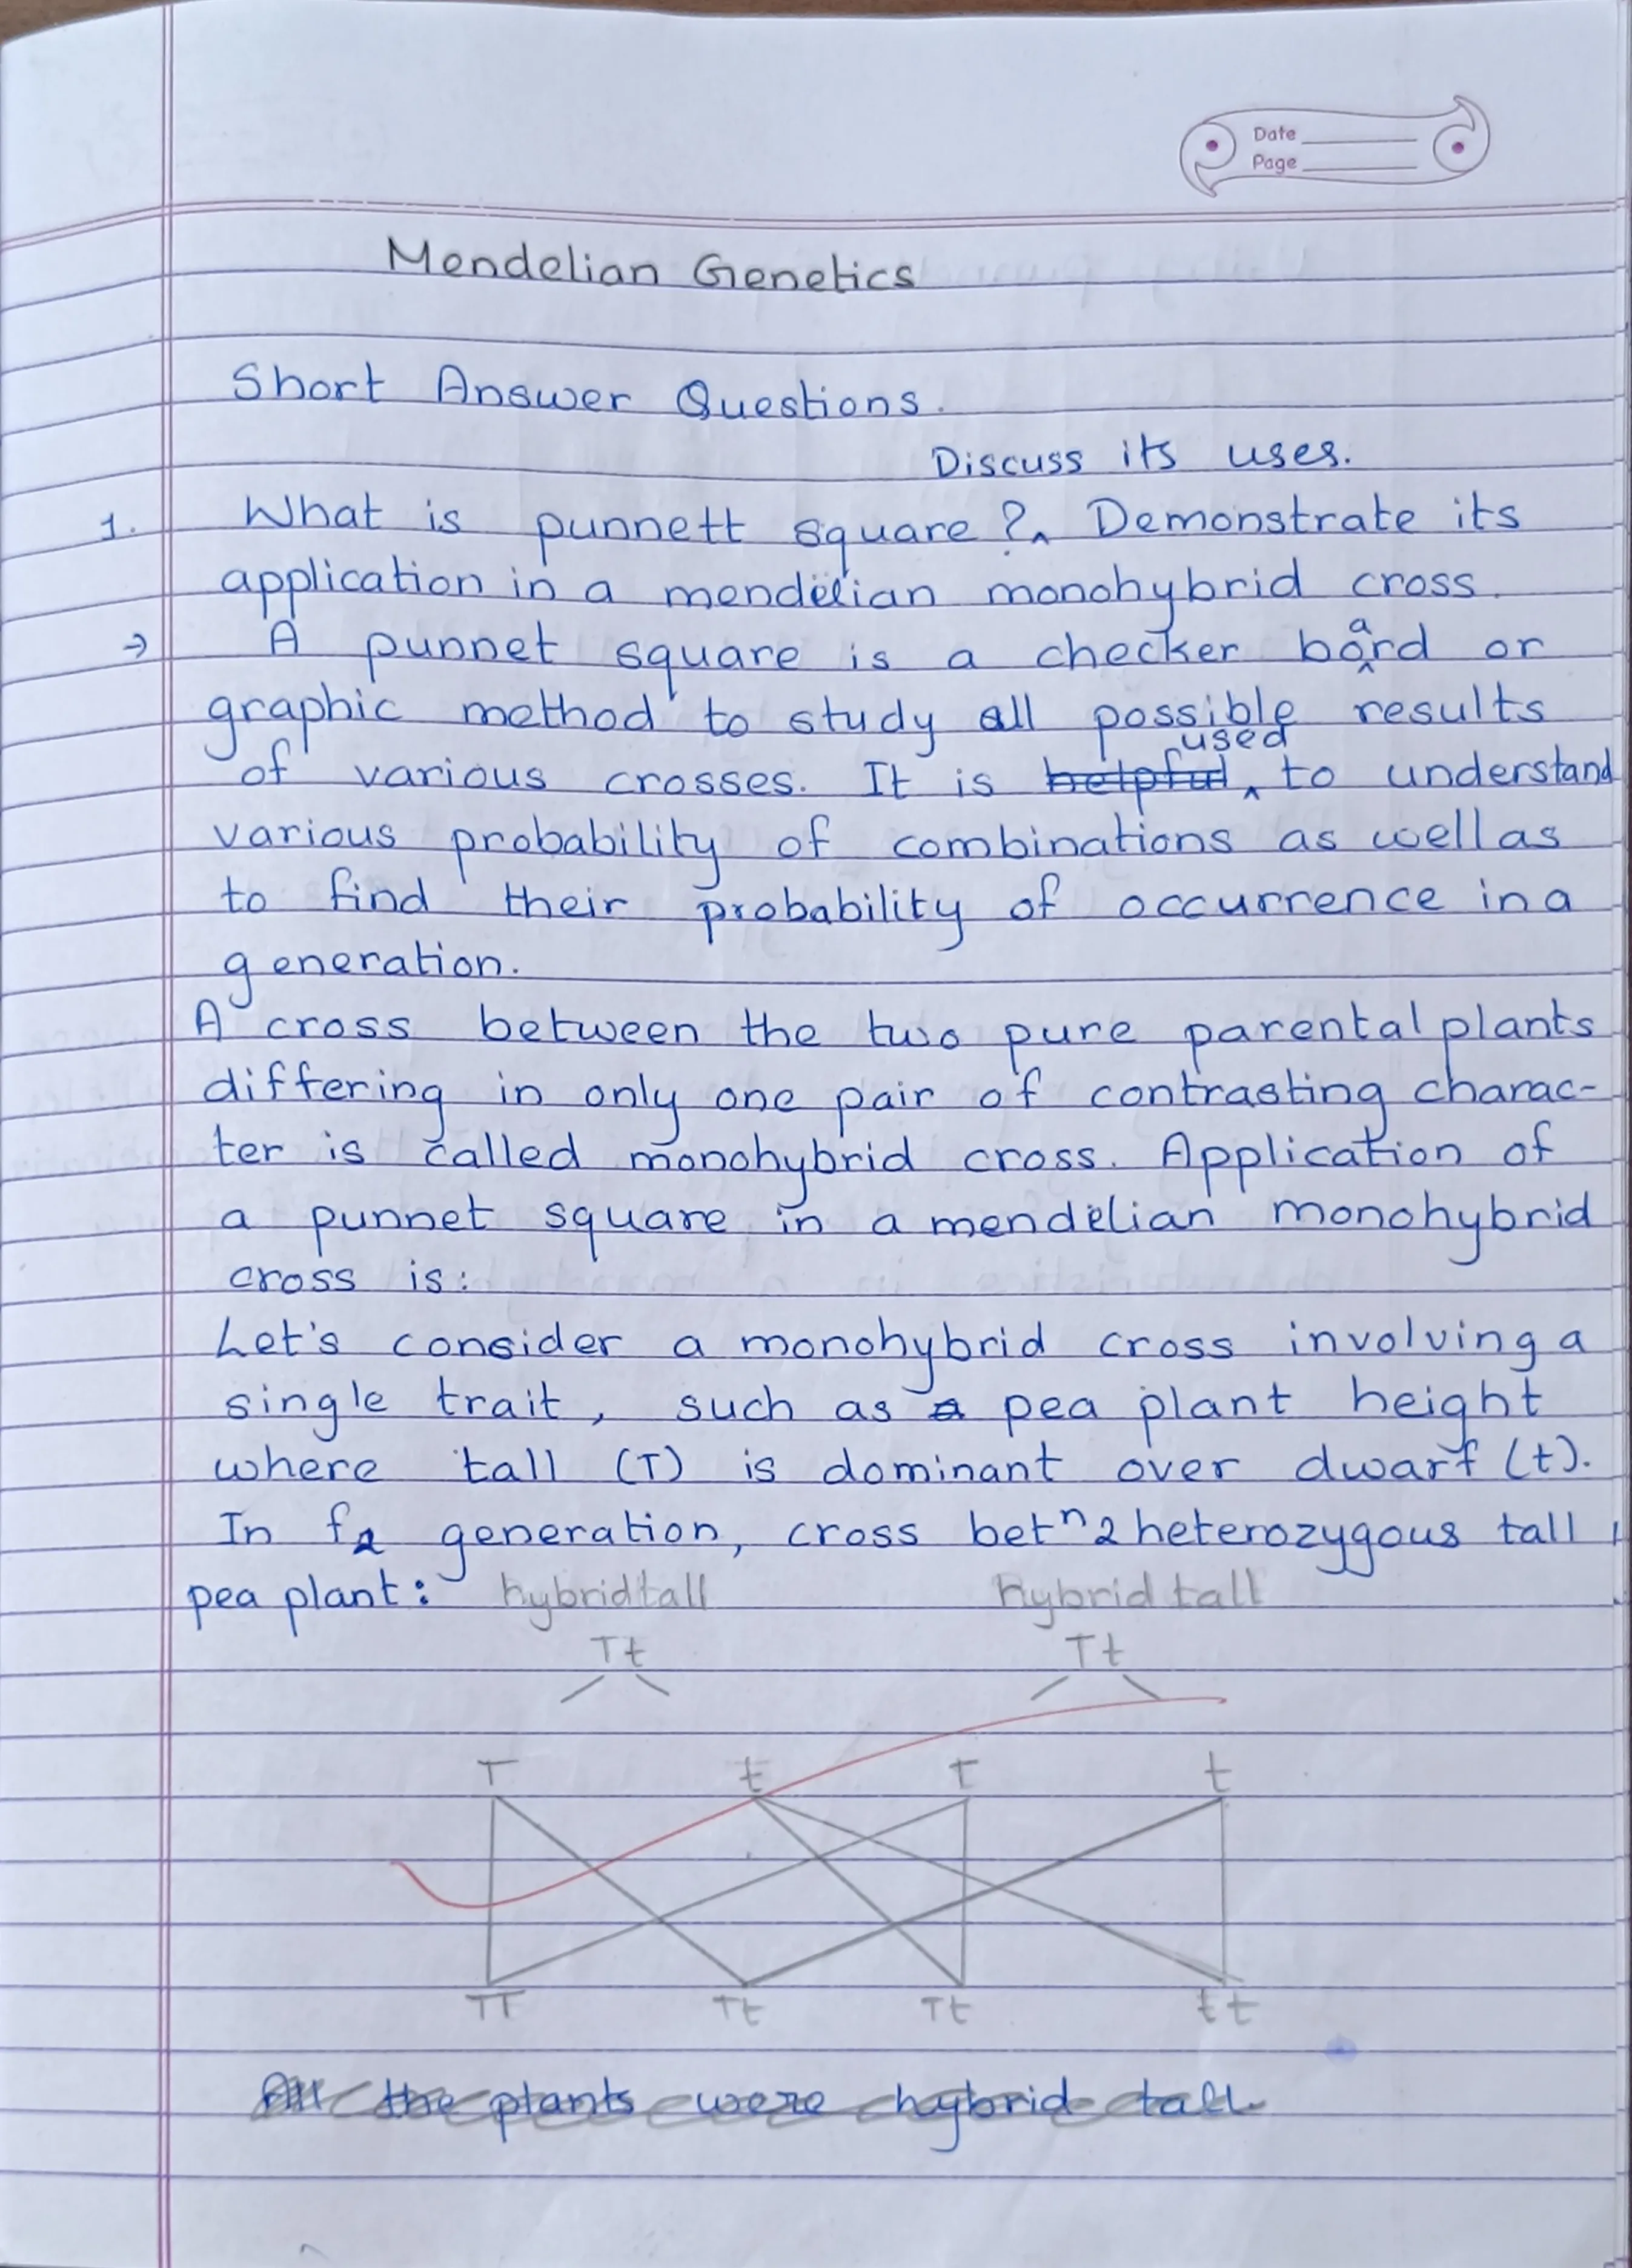 Date
Page
Mendelian Genetics
Short Answer Questions.
Discuss its uses.
1. What is punnett square?‸ Demonstrate its
application in a mendelian monohybrid cross.
→ A punnet square is a checker board or
graphic method to study all possible results
of various crosses. It is ~~helpful~~ ‸used to understand
various probability of combinations as well as
to find their probability of occurrence in a
generation.
A cross between the two pure parental plants
differing in only one pair of contrasting charac-
ter is called monohybrid cross. Application of
a punnet square in a mendelian monohybrid
cross is:
Let's consider a monohybrid cross involving a
single trait, such as ~~a~~ pea plant height
where tall (T) is dominant over dwarf (t).
In f2 generation, cross betⁿ 2 heterozygous tall
pea plant: hybrid tall hybrid tall
Tt Tt
T t T t
TT Tt Tt tt
~~All the plants were hybrid tall~~